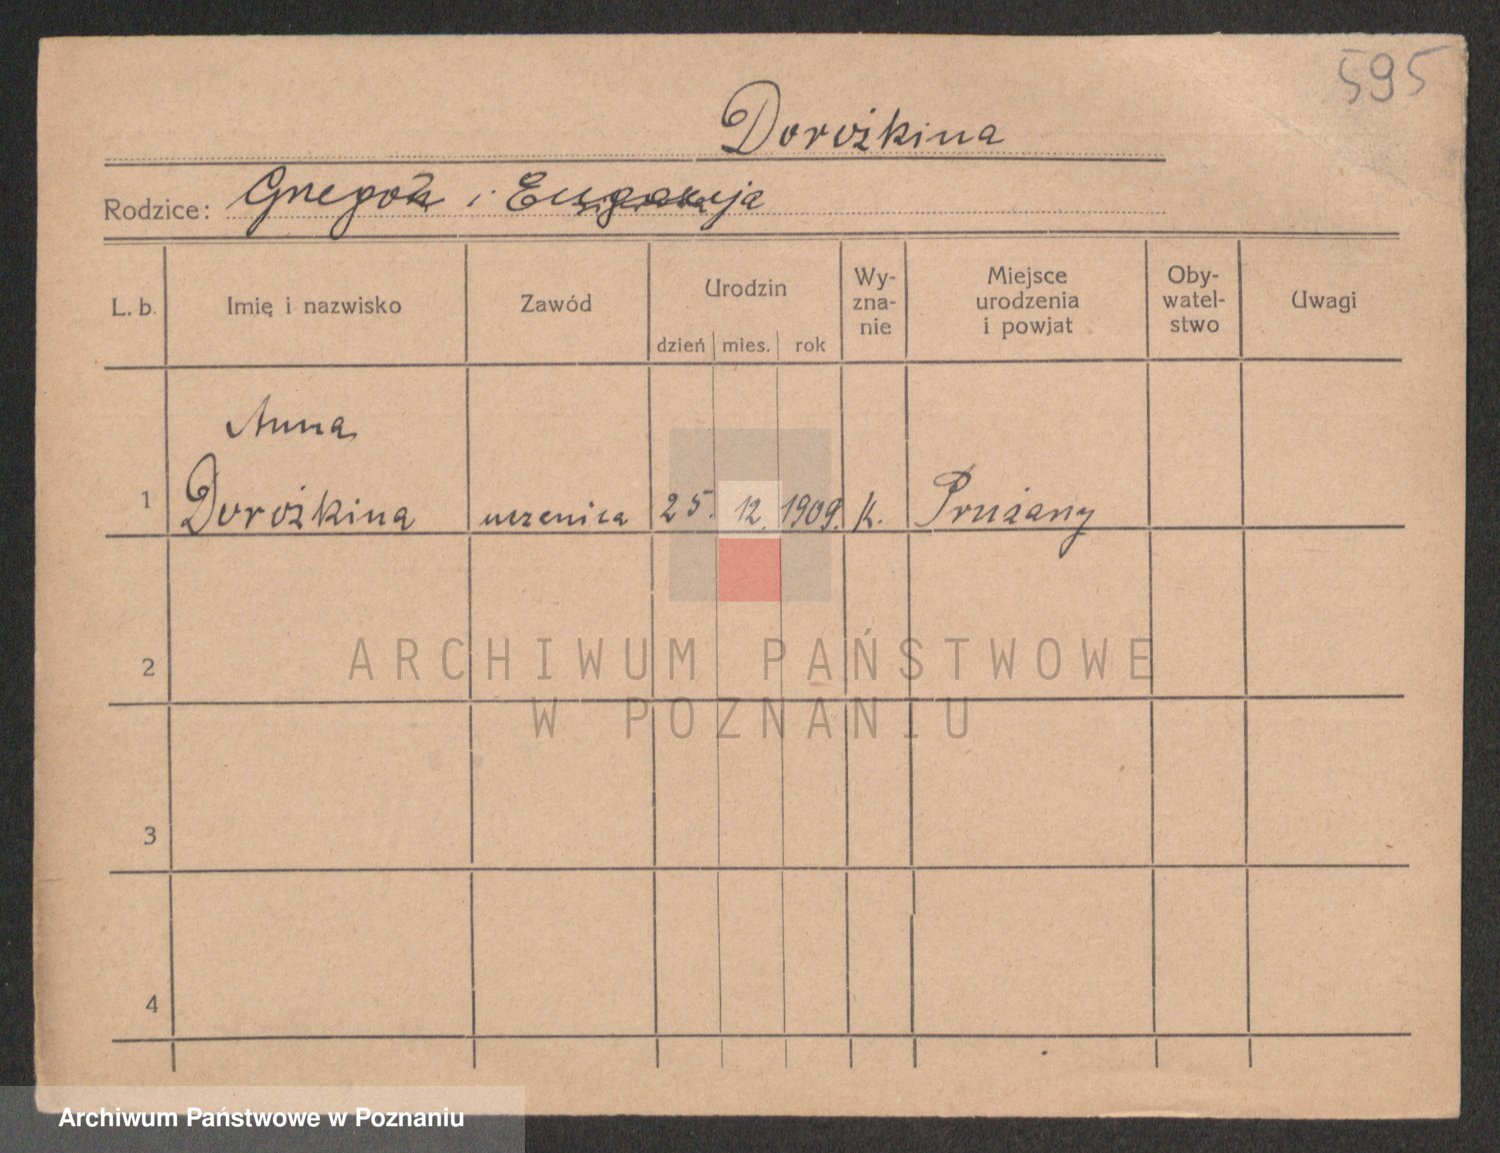 595
Dorożkina
Rodzice: i
L. b. Imię i nazwisko Zawód Urodzin Wy-zna-nie Miejsce urodzenia i powiat Oby-watel-stwo Uwagi
dzień mies. rok
Anna
1 Dorożkina uczenica 25. 12. 1909. k. Prużany
2
ARCHIWUM PAŃSTWOWE
W POZNANIU
3
4
Archiwum Państwowe w Poznaniu